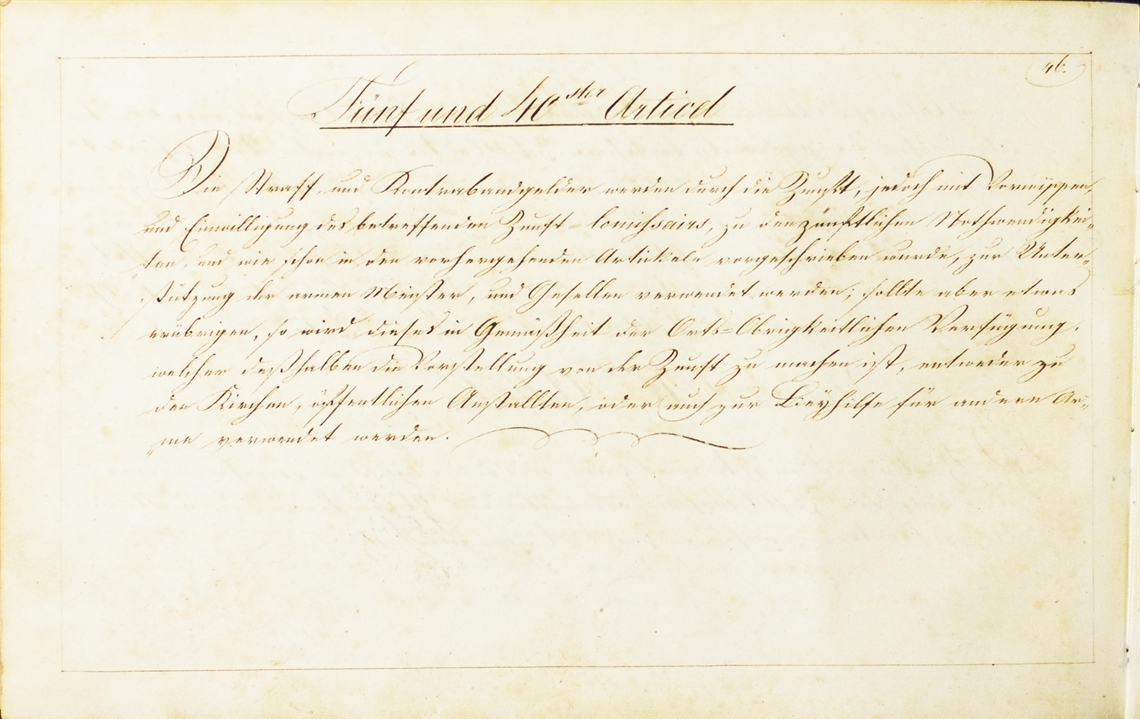 46.
Fünf und 40ster Articel
Die Straff- und Kontrabandgelder werden durch die Zunft, jedoch mit Vorwissen,
und Einwilligung des betreffenden Zunft-Comissairs, zu den zünftlichen Nothwendigkei„
„ten, und wie schon in den vorhergehenden Artickeln vorgeschrieben wurde, zur Unter„
„stützung der armen Meister, und Gesellen verwendet werden; sollte aber etwas
erübrigen, so wird dieses in Gemäßheit der Orts-Obrigkeitlichen Verfügung,
welcher deßhalben die Vorstellung von der Zunft zu machen ist, entweder zu
den Kirchen, öffentlichen Anstallten, oder auch zur Beyhilfe für andere Ar„
„me verwendet werden.